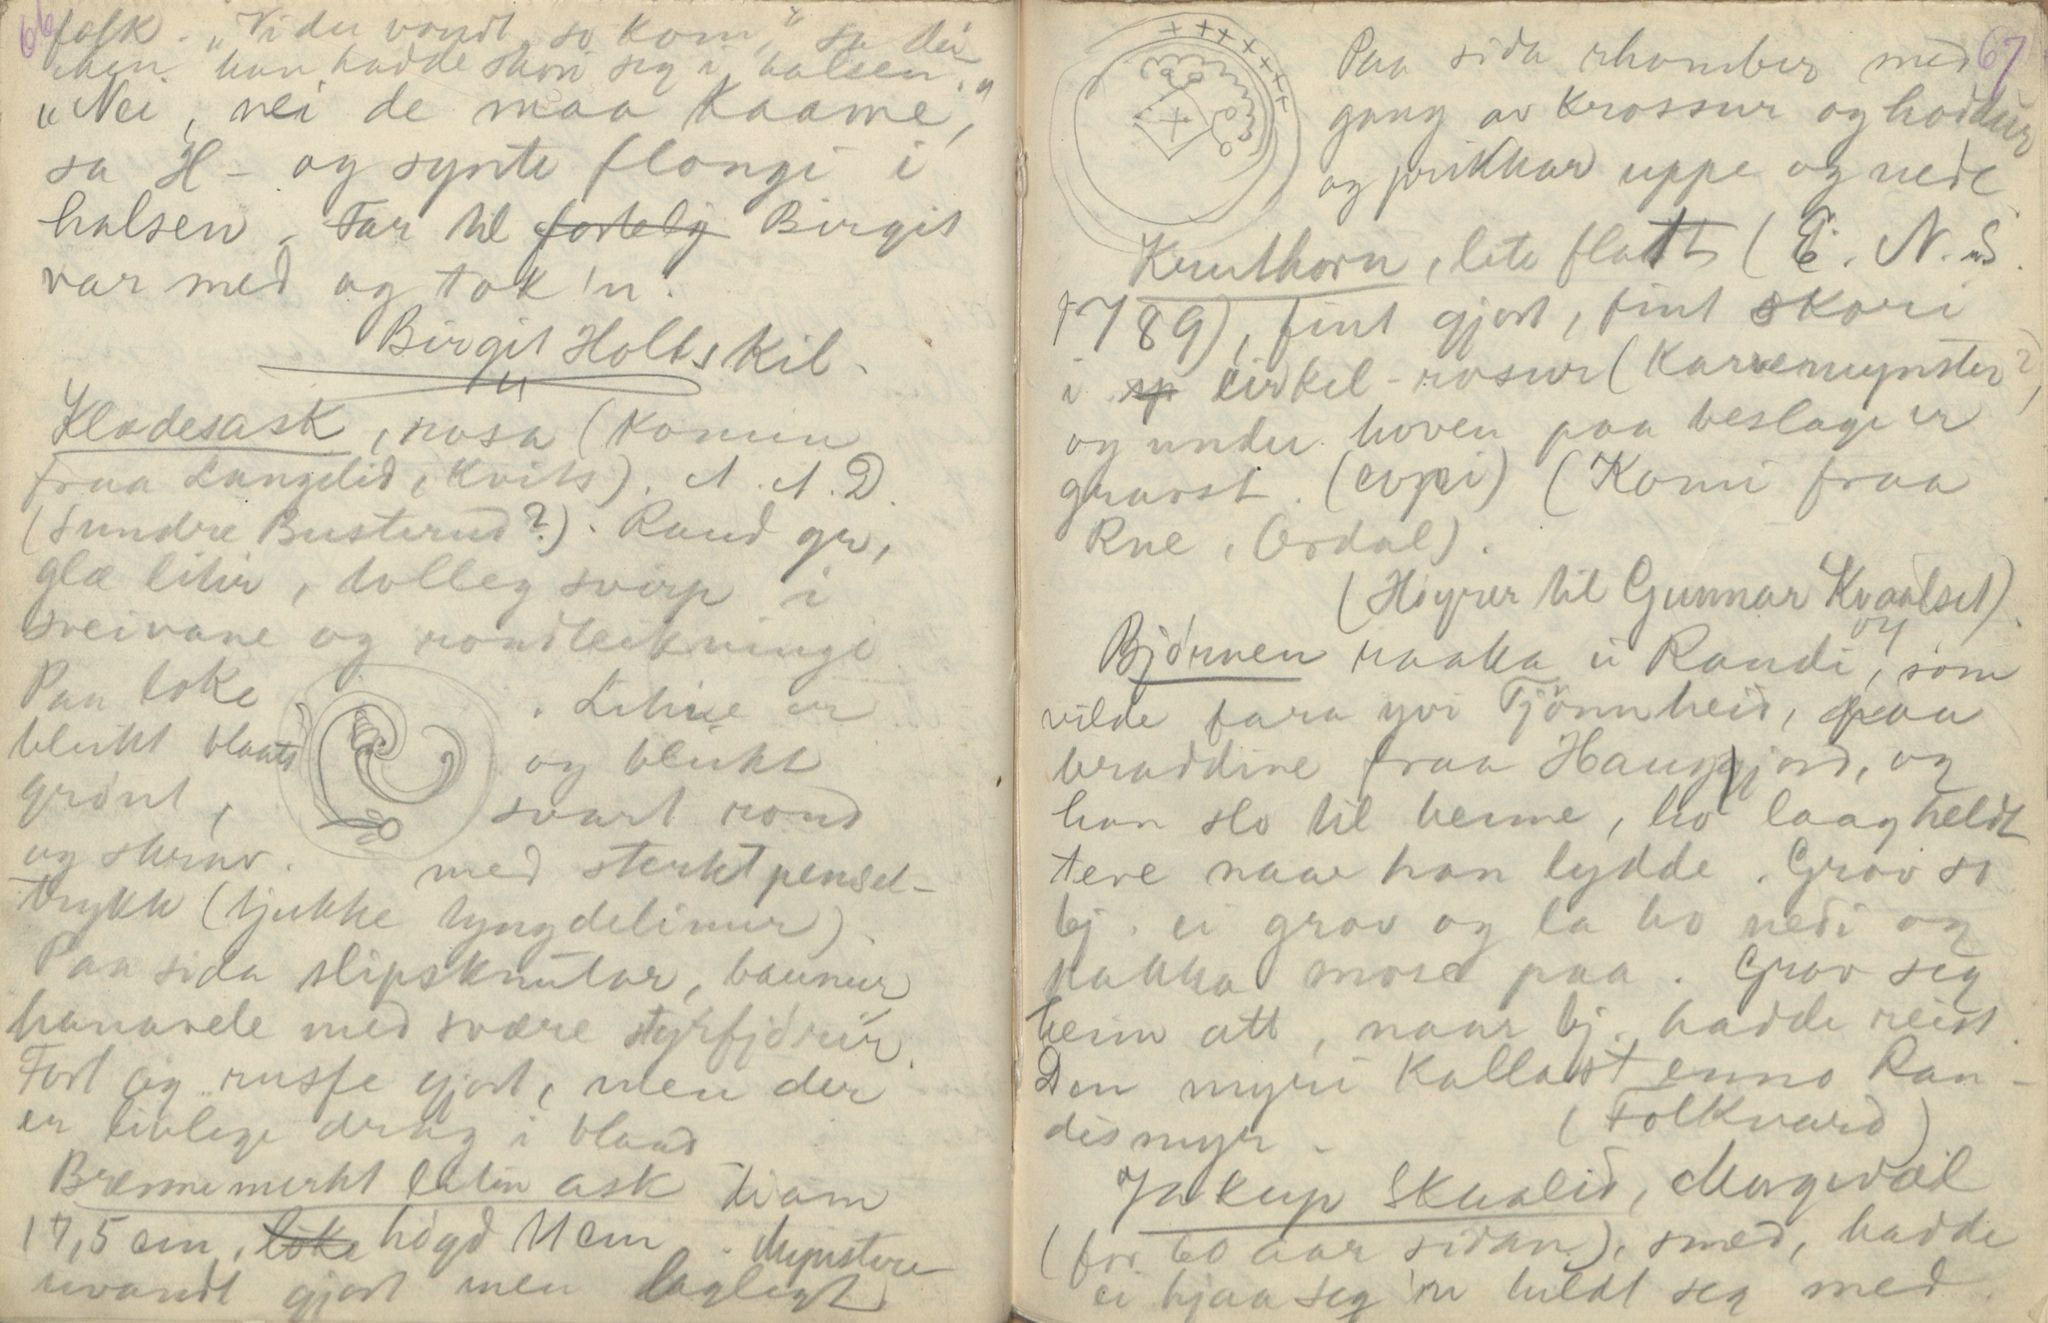 66
folk. "Vi du vondt, so kom," sa dei
han hadde skori seg i halsen.
"Nei, nei de maa kaame,"
sa H - og synte flongi i
halsen. Far til fortelj Birgit
var med og tok 'n.
Birgit Holtskil.
Klædesask, rosa (komin
fraa Langelid, Kvits). N. N. D.
(Sundre Busterud?). Raud gr,
glæ litir, tolleg svirp i
sveivane og rondteikningi
Paa loke
bleikt blaatt
grönt,
og skrav.
. Litine er
og bleikt
svart rond
med sterkt pensel-
trykk (tjukke tyngdelinur).
Paa sida slipsknutar, baunur,
hanavele med svære styrfjörir.
Fort og rusfe gjort, men der
er livlege drag i bland
Brennemerkt liten ask diam
17,5 cm, loke högd 11 cm. Mynstere
uvandt gjort men lagligt
67
Paa sida rhomber med
gang av krossur og hoddur
og prikkar uppe og nede
Kruthorn, lite flatt (E. N. S.
1789), fint gjort, fint skori
i sp cirkel-rosur (karvemynster?)
og under hoven paa beslage er
gravst. (copi) (Komi fraa
Rue, Ordal).
(Höyrer til Gunnar Kvaalset).
Bjørnen raaka ei Randi, som
vilde fara yvi Tjönnheid, paa
braddine fraa Hauggjord, og
han slo til henne, ho laag heldt
tere naar han lydde. Grov so
bj. ei grov og la ho nedi og
kakka mose paa. Grov seg
heim att, naar bj. hadde reist.
Den myri kallast enno Ran-
dismyr.
(Folkvard)
Jakup Skualid, Morgedal
(for 60 aar sidan), smed, hadde
ei hjaa seg 'n heldt seg med